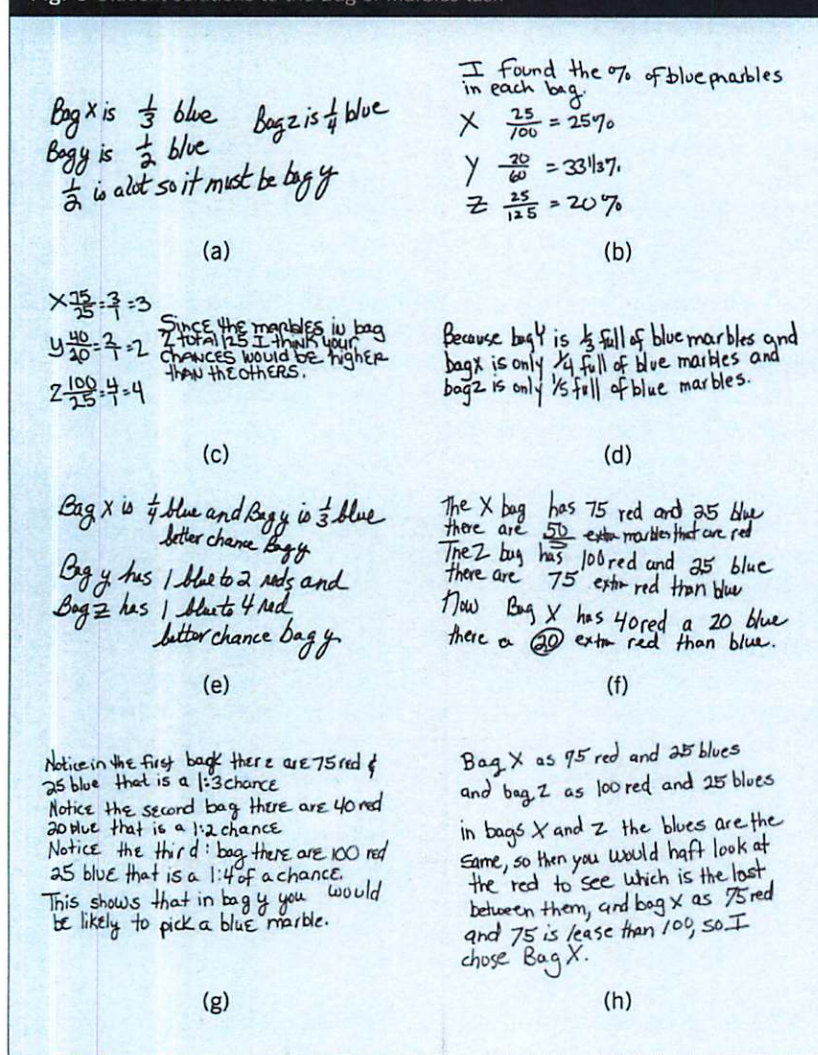 Bag X is 1/3 blue Bag z is 1/4 blue
Bag y is 1/2 blue
1/2 is alot so it must be bag y
(a)
I found the % of blue marbles
in each bag.
X 25/100 = 25%
Y 20/60 = 33 1/3%
Z 25/125 = 20%
(b)
X 75/25 = 3/1 = 3
y 40/20 = 2/1 = 2
Z 100/25 = 4/1 = 4
Since the marbles in bag
Z total 125 I think your
chances would be higher
than the others.
(c)
Because bag Y is 1/3 full of blue marbles and
bag x is only 1/4 full of blue marbles and
bag z is only 1/5 full of blue marbles.
(d)
Bag X is 1/4 blue and Bag y is 1/3 blue
better chance Bag y
Bag y has 1 blue to 2 reds and
Bag z has 1 blue to 4 red
better chance bag y
(e)
The X bag has 75 red and 25 blue
there are 50 extra marbles that are red
The Z bag has 100 red and 25 blue
there are 75 extra red than blue
Now Bag X has 40 red a 20 blue
there a 20 extra red than blue.
(f)
Notice in the first bag there are 75 red &
25 blue that is a 1:3 chance
Notice the second bag there are 40 red
20 blue that is a 1:2 chance
Notice the third: bag there are 100 red
25 blue that is a 1:4 of a chance.
This shows that in bag y you would
be likely to pick a blue marble.
(g)
Bag X as 75 red and 25 blues
and bag Z as 100 red and 25 blues
in bags X and Z the blues are the
same, so then you would haft look at
the red to see which is the lost
between them, and bag x as 75 red
and 75 is lease than 100, so I
chose Bag X.
(h)